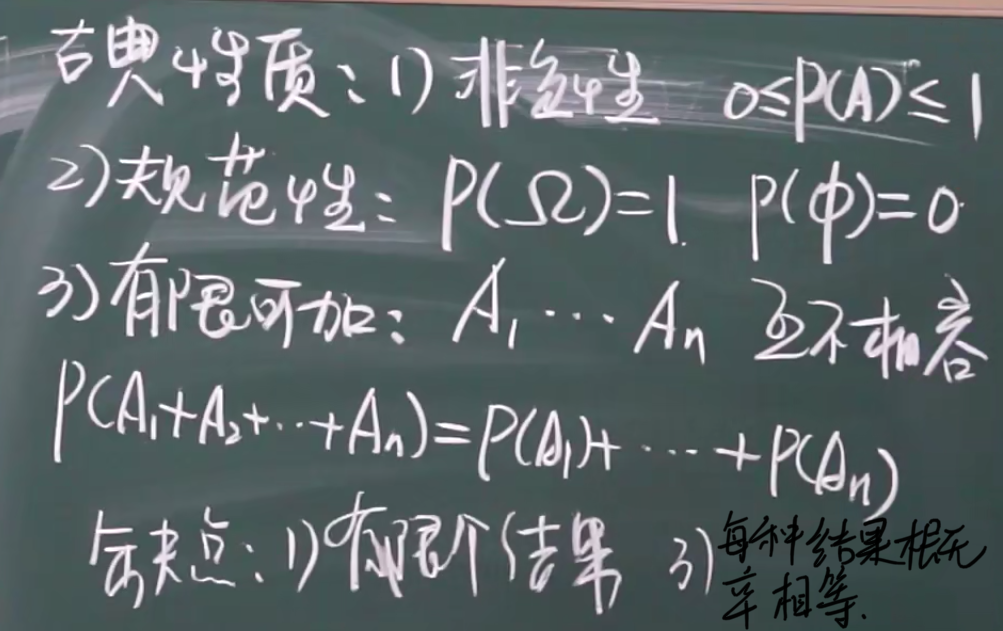 古典性质：1) 非负性 0≤P(A)≤1
2)规范性：P(Ω)=1. P(φ)=0
3)有限可加：A₁…Aₙ 互不相容
P(A₁+A₂+…+Aₙ)=P(A₁)+…+P(Aₙ)
缺点：1)有限个结果 3)每种结果概
率相等.